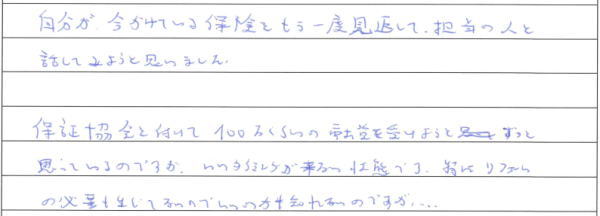 自分が、今かけている保険をもう一度見返して、担当の人と
話してみようと思いました。
保証協会を付けて100万くらいの融資を受けようと ずっと
思っているのですが、いいタイミングが来ない状態です。特にリフォーム
の必要も生じてないのでいいのかも知れないのですが、…